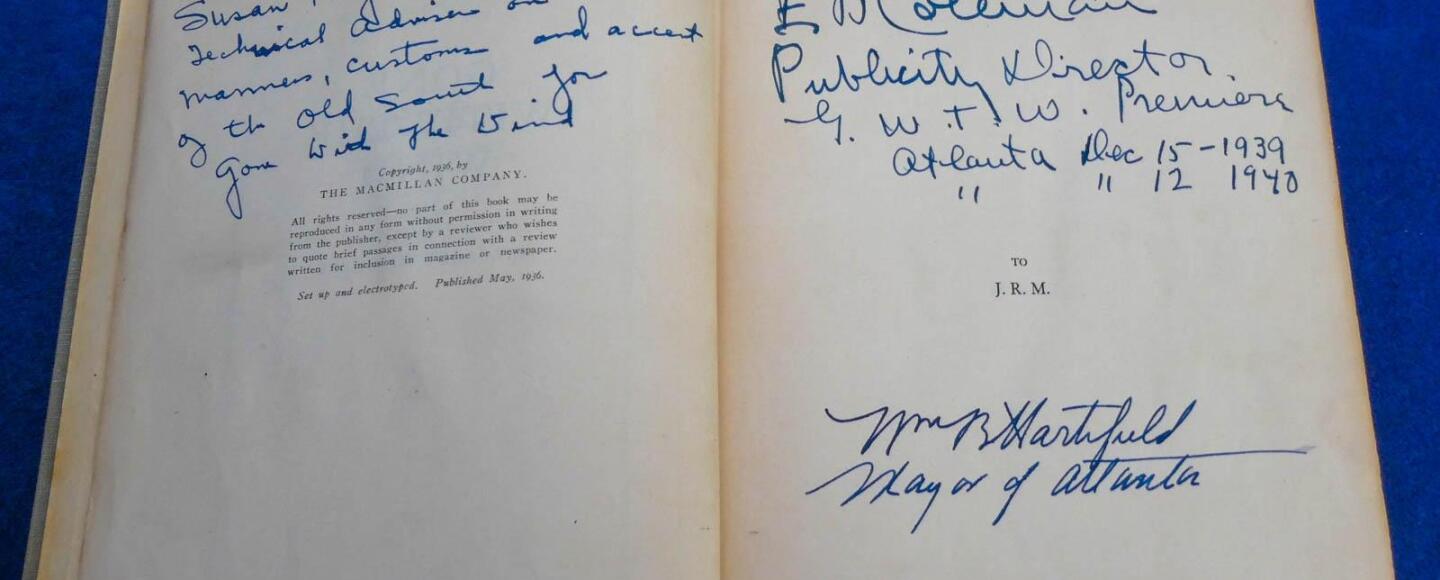 Susan
Technical Adviser on
manners, customs and accent
of the Old South for
Gone With The Wind
Copyright, 1936, by
THE MACMILLAN COMPANY.
All rights reserved—no part of this book may be
reproduced in any form without permission in writing
from the publisher, except by a reviewer who wishes
to quote brief passages in connection with a review
written for inclusion in magazine or newspaper.
Set up and electrotyped. Published May, 1936.
E B Coleman
Publicity Director.
G. W. T. W. Premiere
Atlanta Dec 15-1939
" " 12 1940
TO
J. R. M.
Wm B Hartsfield
Mayor of Atlanta